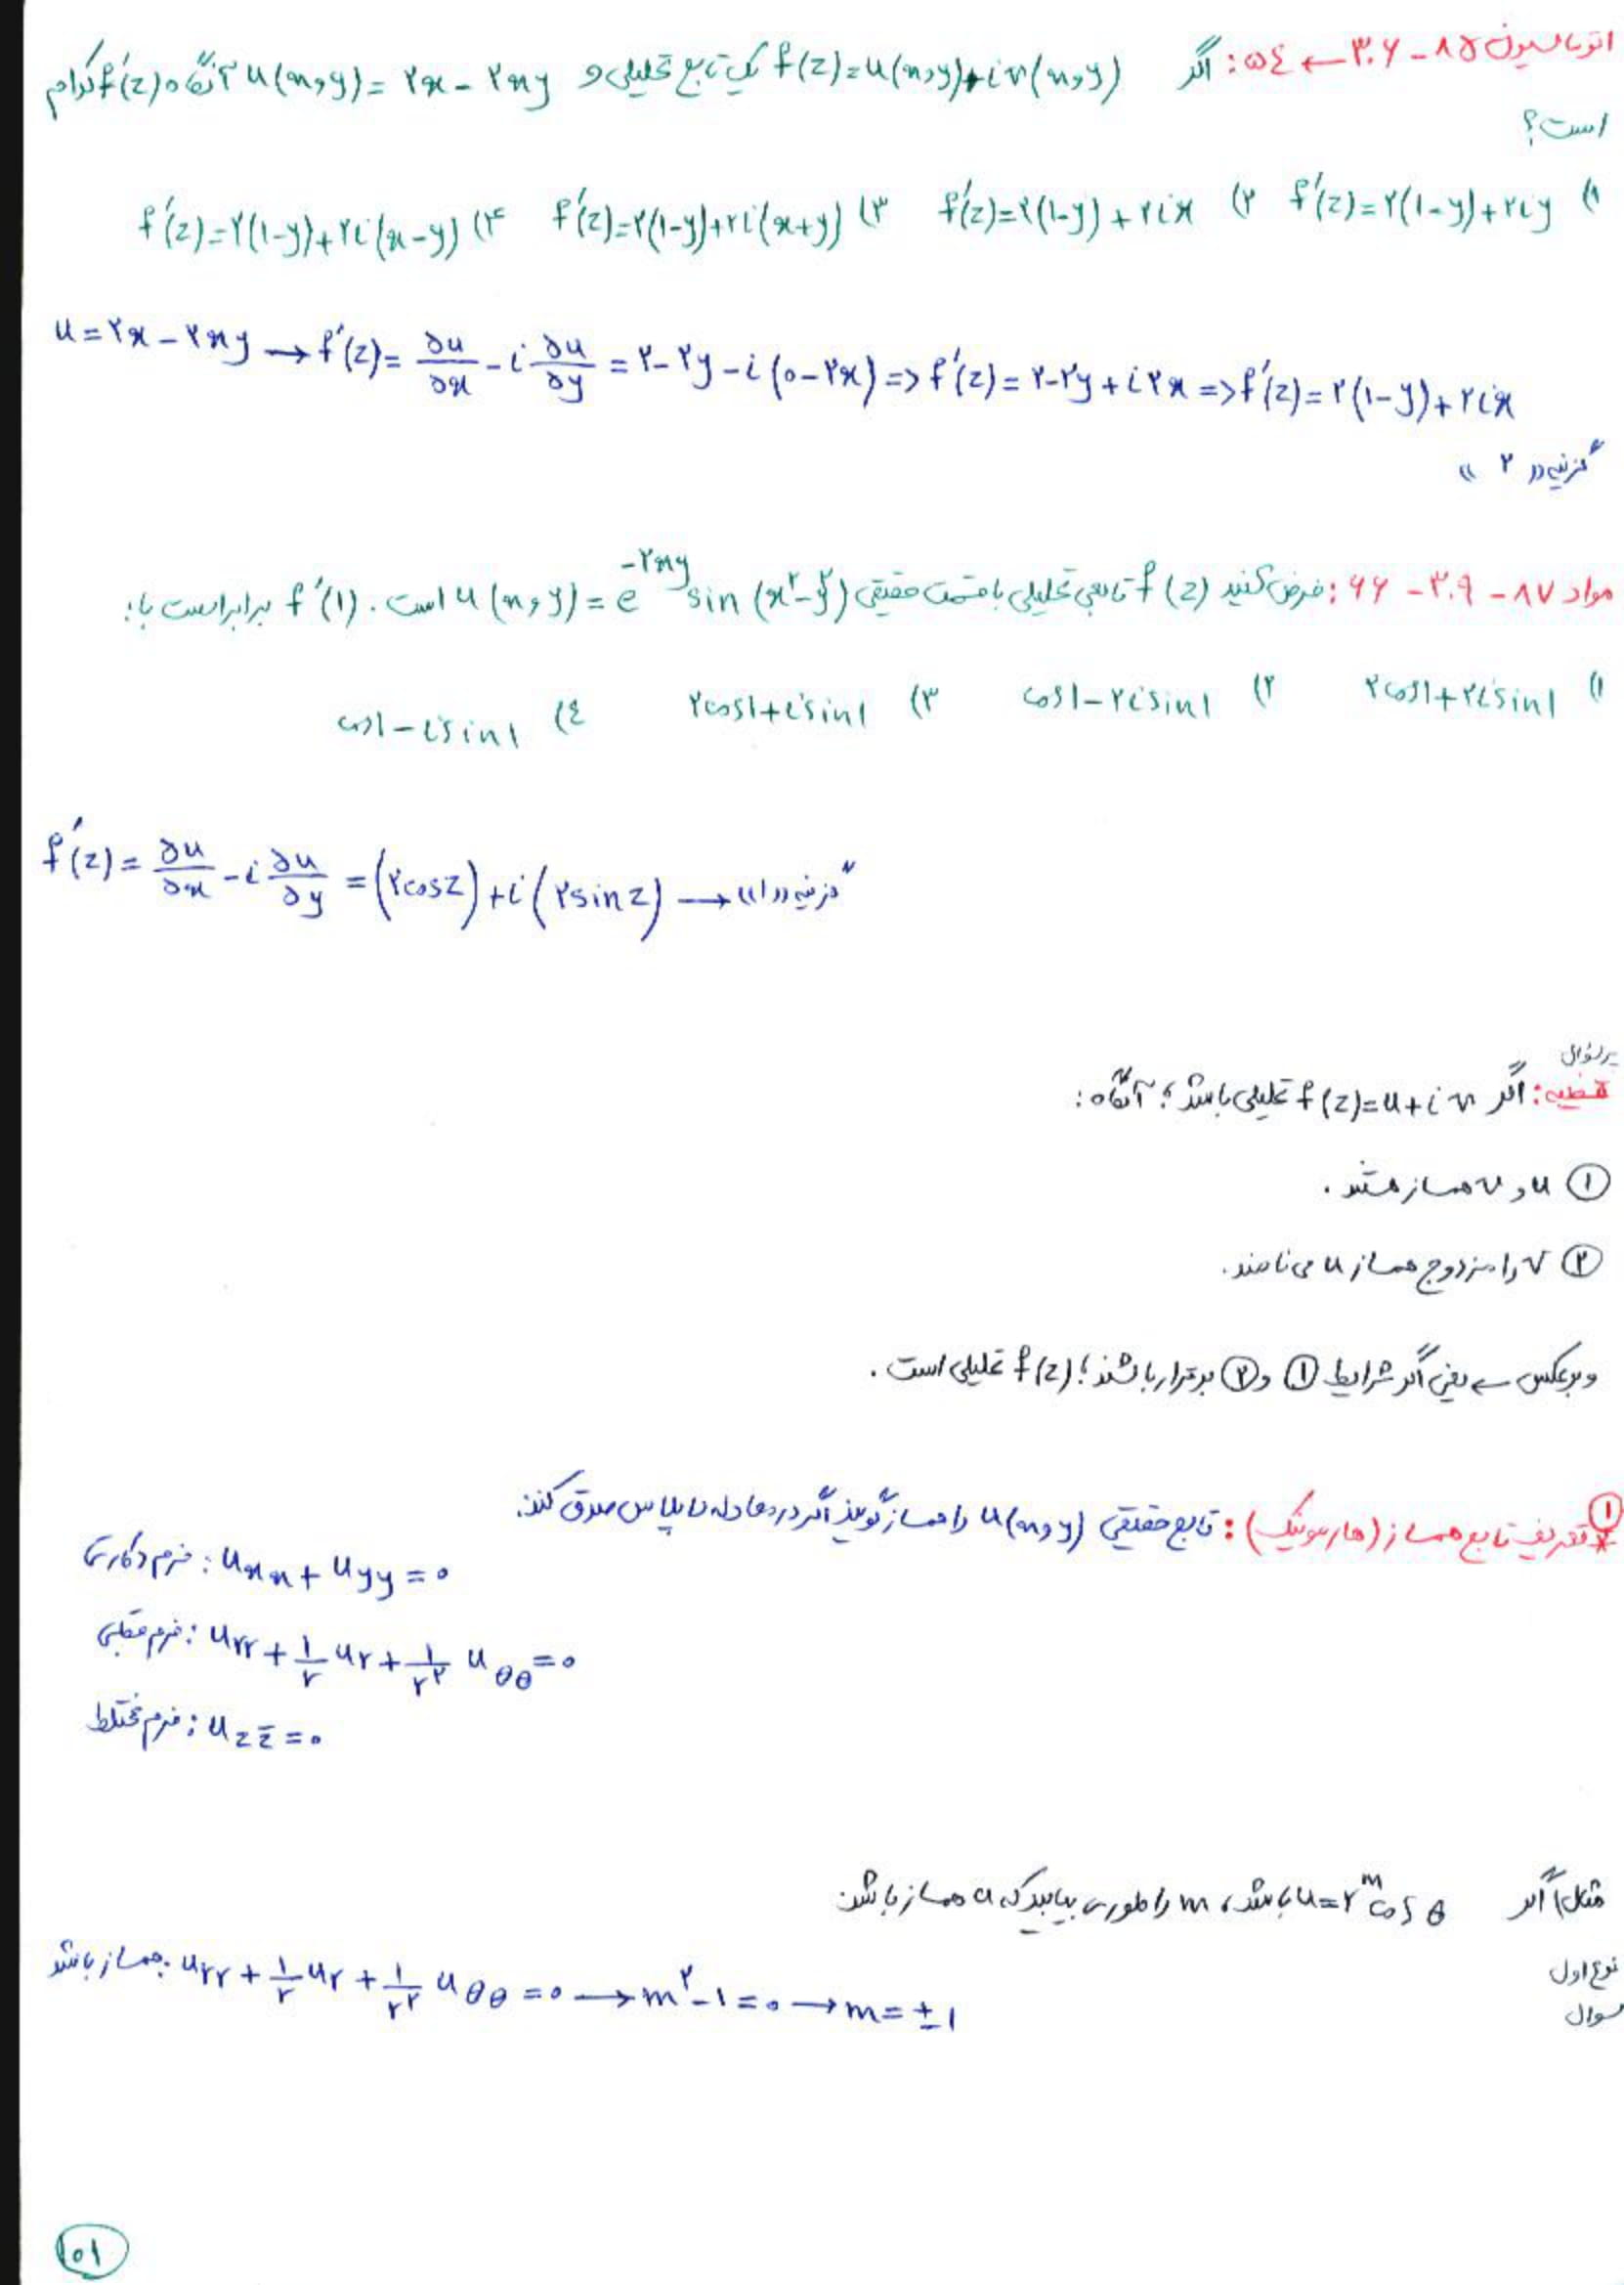 اتوماسیون ۸۵ - ۳.۶ ← ۵٤ : اگر f(z)=u(x,y)+iv(x,y) یک تابع تحلیلی و u(x,y)= ۲x - ۲xy آنگاه f′(z) کدام
است؟
۱) f′(z)=۲(۱-y)+۲iy ۲) f′(z)=۲(۱-y)+۲ix ۳) f′(z)=۲(۱-y)+۲i(x+y) ۴) f′(z)=۲(۱-y)+۲i(x-y)
u=۲x-۲xy → f′(z)= ∂u/∂x - i ∂u/∂y = ۲-۲y-i(0-۲x) => f′(z)=۲-۲y+i۲x => f′(z)=۲(۱-y)+۲ix
گزینه «۲»
مواد ۸۷ - ۳.۹ - ۶۶ : فرض کنید f(z) تابعی تحلیلی با قسمت حقیقی u(x,y)=e^{-۲xy} sin(x²-y²) است. f′(۱) برابر است با:
۱) ۲cos۱+۲i sin۱ ۲) cos۱-۲i sin۱ ۳) ۲cos۱+i sin۱ ٤) cos۱-i sin۱
f′(z)= ∂u/∂x - i ∂u/∂y = (۲cosz)+i(۲sinz) → گزینه «۱»
پرسؤال
قضیه: اگر f(z)=u+iv تحلیلی باشد؛ آنگاه:
① u و v همساز هستند.
② v را مزدوج همساز u می نامند.
و برعکس ← یعنی اگر شرایط ① و ② برقرار باشند؛ f(z) تحلیلی است.
① * تعریف تابع همساز (هارمونیک): تابع حقیقی u(x,y) را همساز گویند اگر در معادله لاپلاس صدق کند.
فرم دکارتی: u_{xx}+u_{yy}=0
فرم قطبی: u_{rr}+1/r u_r+1/r² u_{θθ}=0
فرم مختلط: u_{z z̄}=0
مثال) اگر u=r^m cos θ باشد، m را طوری بیابید که u همساز باشد.
نوع اول
سوال
همساز باشد: u_{rr}+1/r u_r+1/r² u_{θθ}=0 → m²-1=0 → m=±1
101